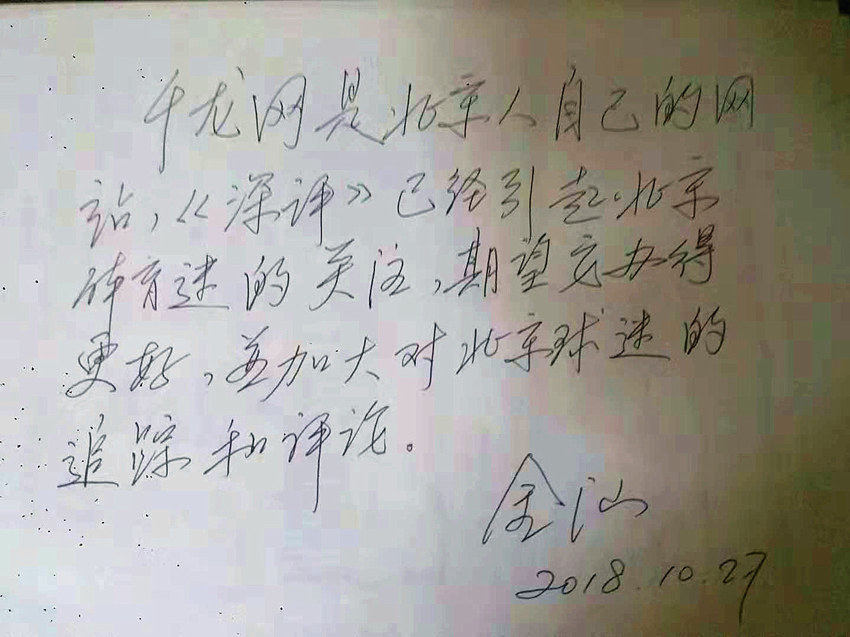 千龙网是北京人自己的网
站，《深评》已经引起北京
体育迷的关注，期望它办得
更好，并加大对北京球迷的
追踪和评论。
金汕
2018.10.27